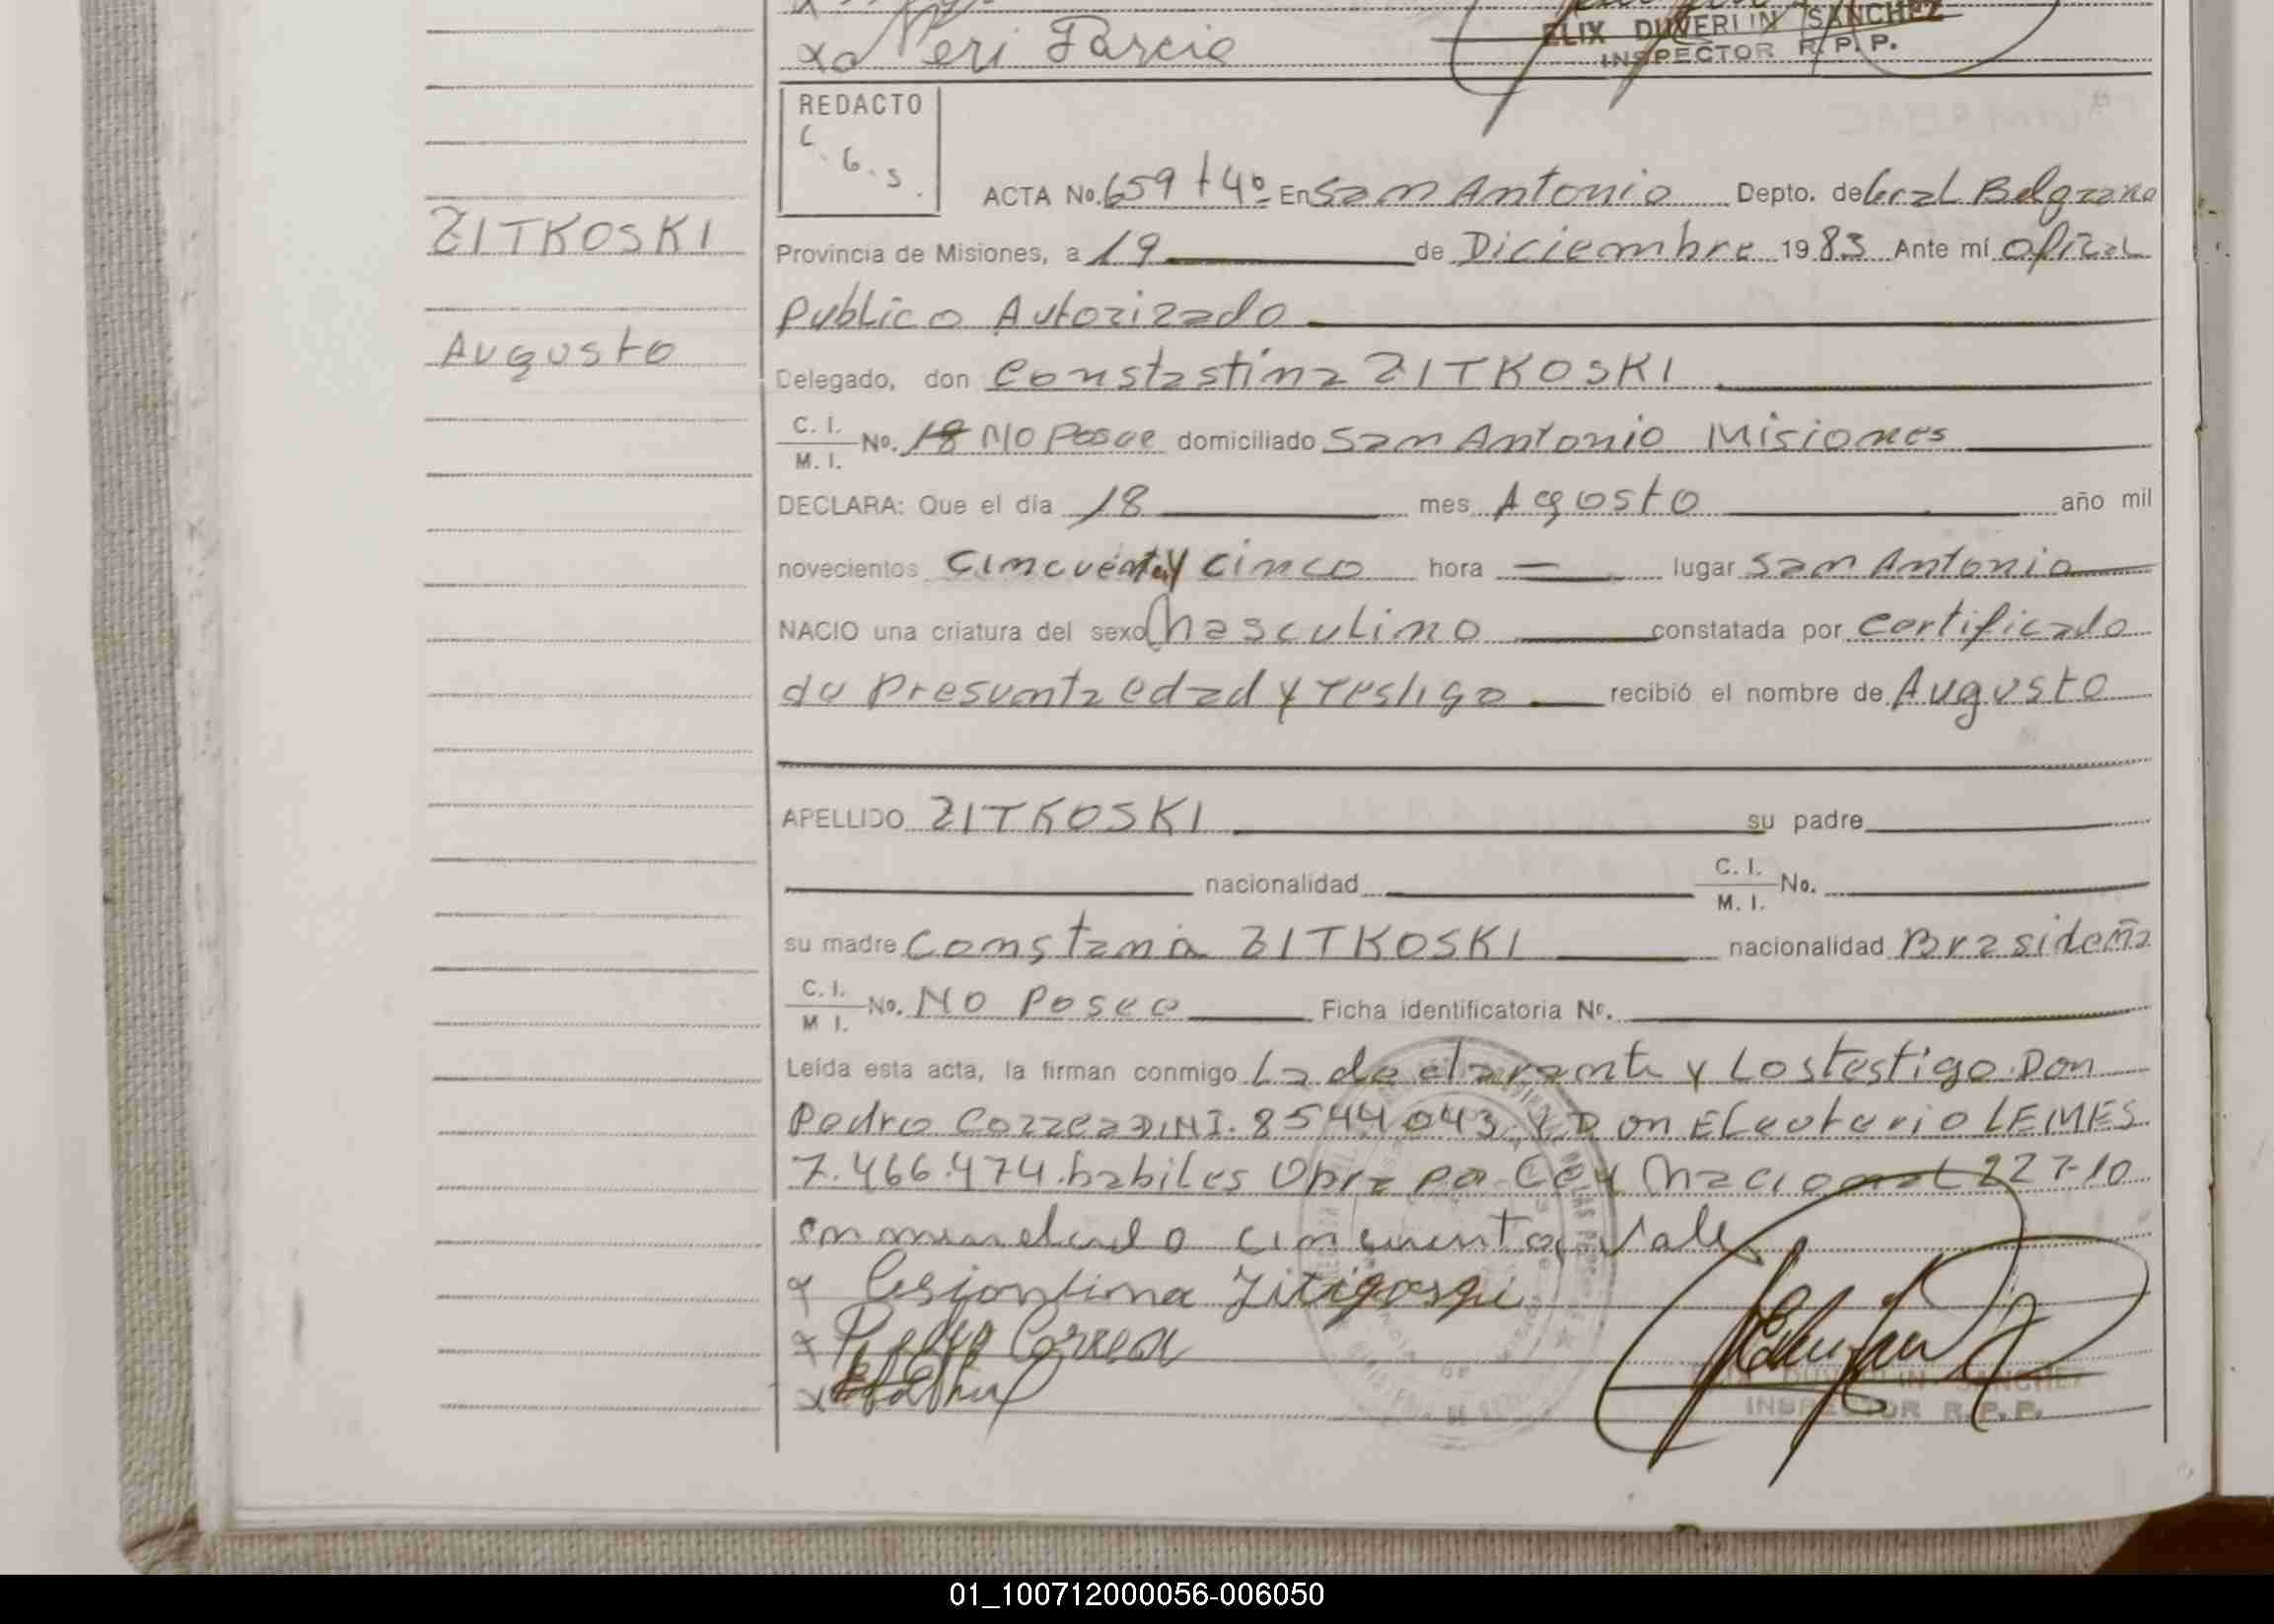 Neri Garcia
ELIX DUVERLIN SANCHEZ
INSPECTOR R.P.P.
REDACTO
C.G.S.
ZITKOSKI
Augusto
ACTA No. 659 t 4º En San Antonio Depto. de Gral Belgrano
Provincia de Misiones, a 19 de Diciembre 1983 Ante mí oficial
Publico Autorizado
Delegado, don Constastina ZITKOSKI
C. I. / M. I. No. 18 No Posee domiciliado San Antonio Misiones
DECLARA: Que el día 18 mes Agosto año mil
novecientos Cincuenta y cinco hora — lugar San Antonio
NACIO una criatura del sexo Masculino constatada por certificado
de Presunta edad y Testigo recibió el nombre de Augusto
APELLIDO ZITKOSKI su padre
nacionalidad C. I. / M. I. No.
su madre Constania ZITKOSKI nacionalidad Brasideña
C. I. / M I. No. No Posee Ficha identificatoria Nr.
Leída esta acta, la firman conmigo La declarante y Los testigo Don
Pedro Correa D.N.I. 8544043 Y Don Eleuterio LEMES
7.466.474 habiles Obra por Ley Nacional 227-10
enmendado cincuenta Vale
x Zitigosqi
x Pedro Correa
x
DUVERLIN SANCHEZ
INSPECTOR R.P.P.
01_100712000056-006050